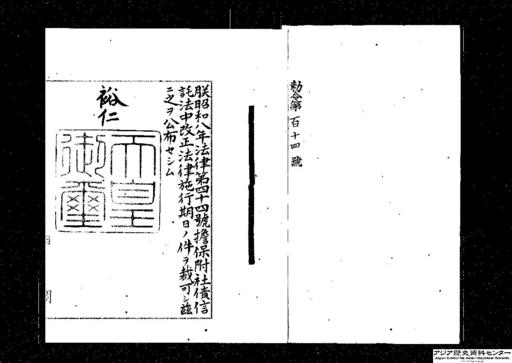 勅令第百十四號
朕昭和八年法律第四十四號擔保附社債信
託法中改正法律施行期日ノ件ヲ裁可シ茲
ニ之ヲ公布セシム
裕仁
天皇
御璽
内閣
アジア歴史資料センター
Japan Center for Asian Historical Records